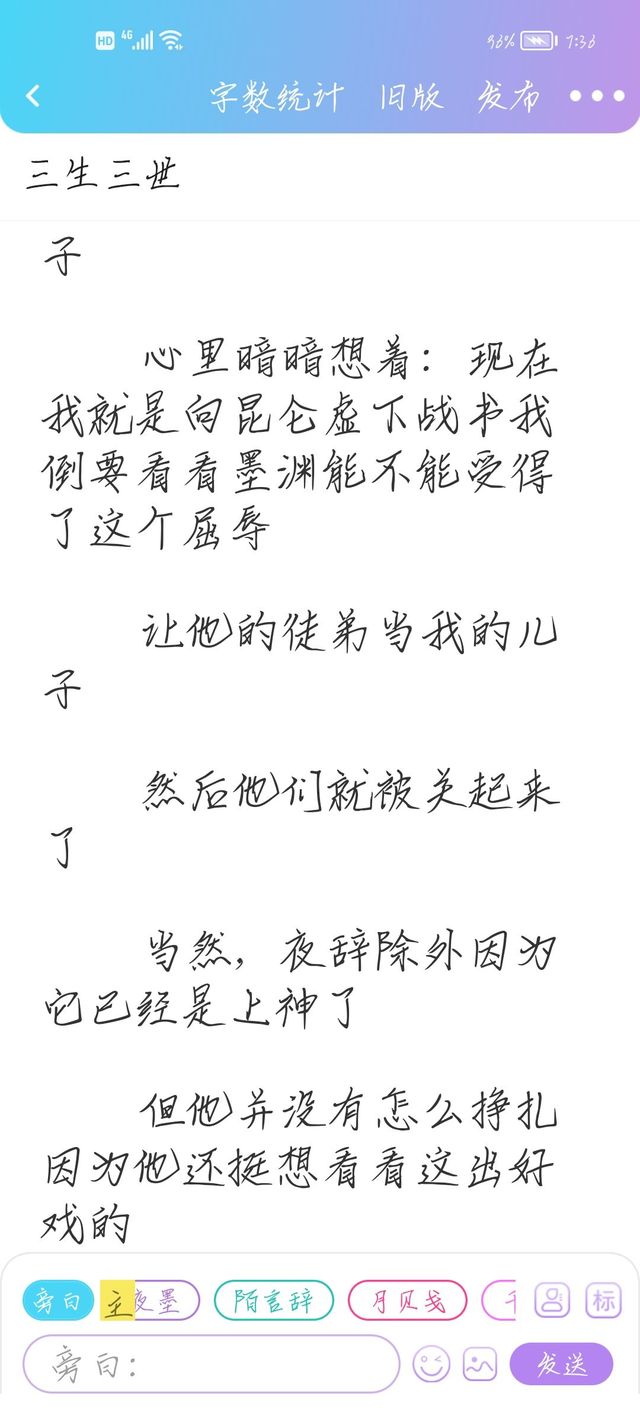 HD 4G 96% 7:36
字数统计 旧版 发布
三生三世
子
心里暗暗想着：现在
我就是向昆仑虚下战书我
倒要看看墨渊能不能受得
了这个屈辱
让他的徒弟当我的儿
子
然后他们就被关起来
了
当然，夜辞除外因为
它已经是上神了
但他并没有怎么挣扎
因为他还挺想看看这出好
戏的
旁白 主 夜墨 陌言辞 月贝戋 标
旁白： 发送